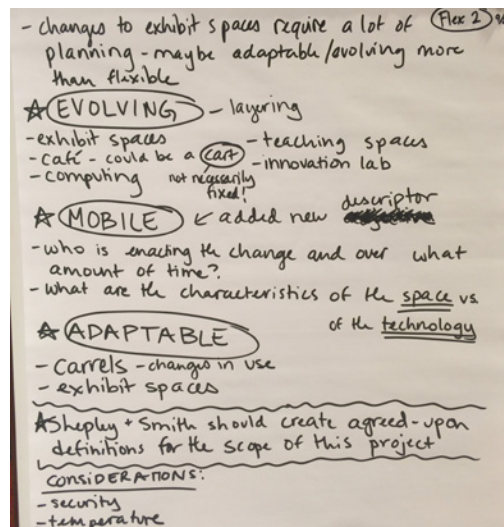 - changes to exhibit spaces require a lot of
Flex 2
planning - maybe adaptable/evolving more
than flexible
☆ EVOLVING - layering
- exhibit spaces
- teaching spaces
- café - could be a cart
- innovation lab
- computing
not necessarily
fixed!
☆ MOBILE ↙ added new descriptor
- who is enacting the change and over what
amount of time?
- what are the characteristics of the space vs.
of the technology
☆ ADAPTABLE
- carrels - changes in use
- exhibit spaces
☆ Shepley + Smith should create agreed-upon
definitions for the scope of this project
CONSIDERATIONS:
- security
- temperature